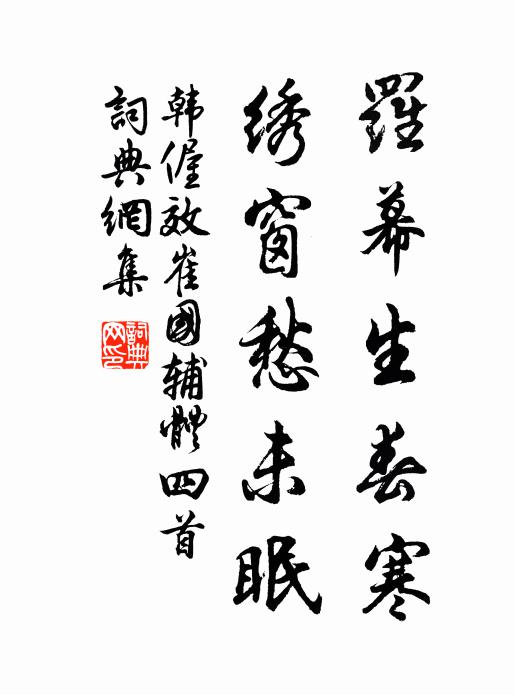 羅幕生春寒
绣窗愁未眠
韩偓效崔國辅體四首
詞典網集
詞典网印